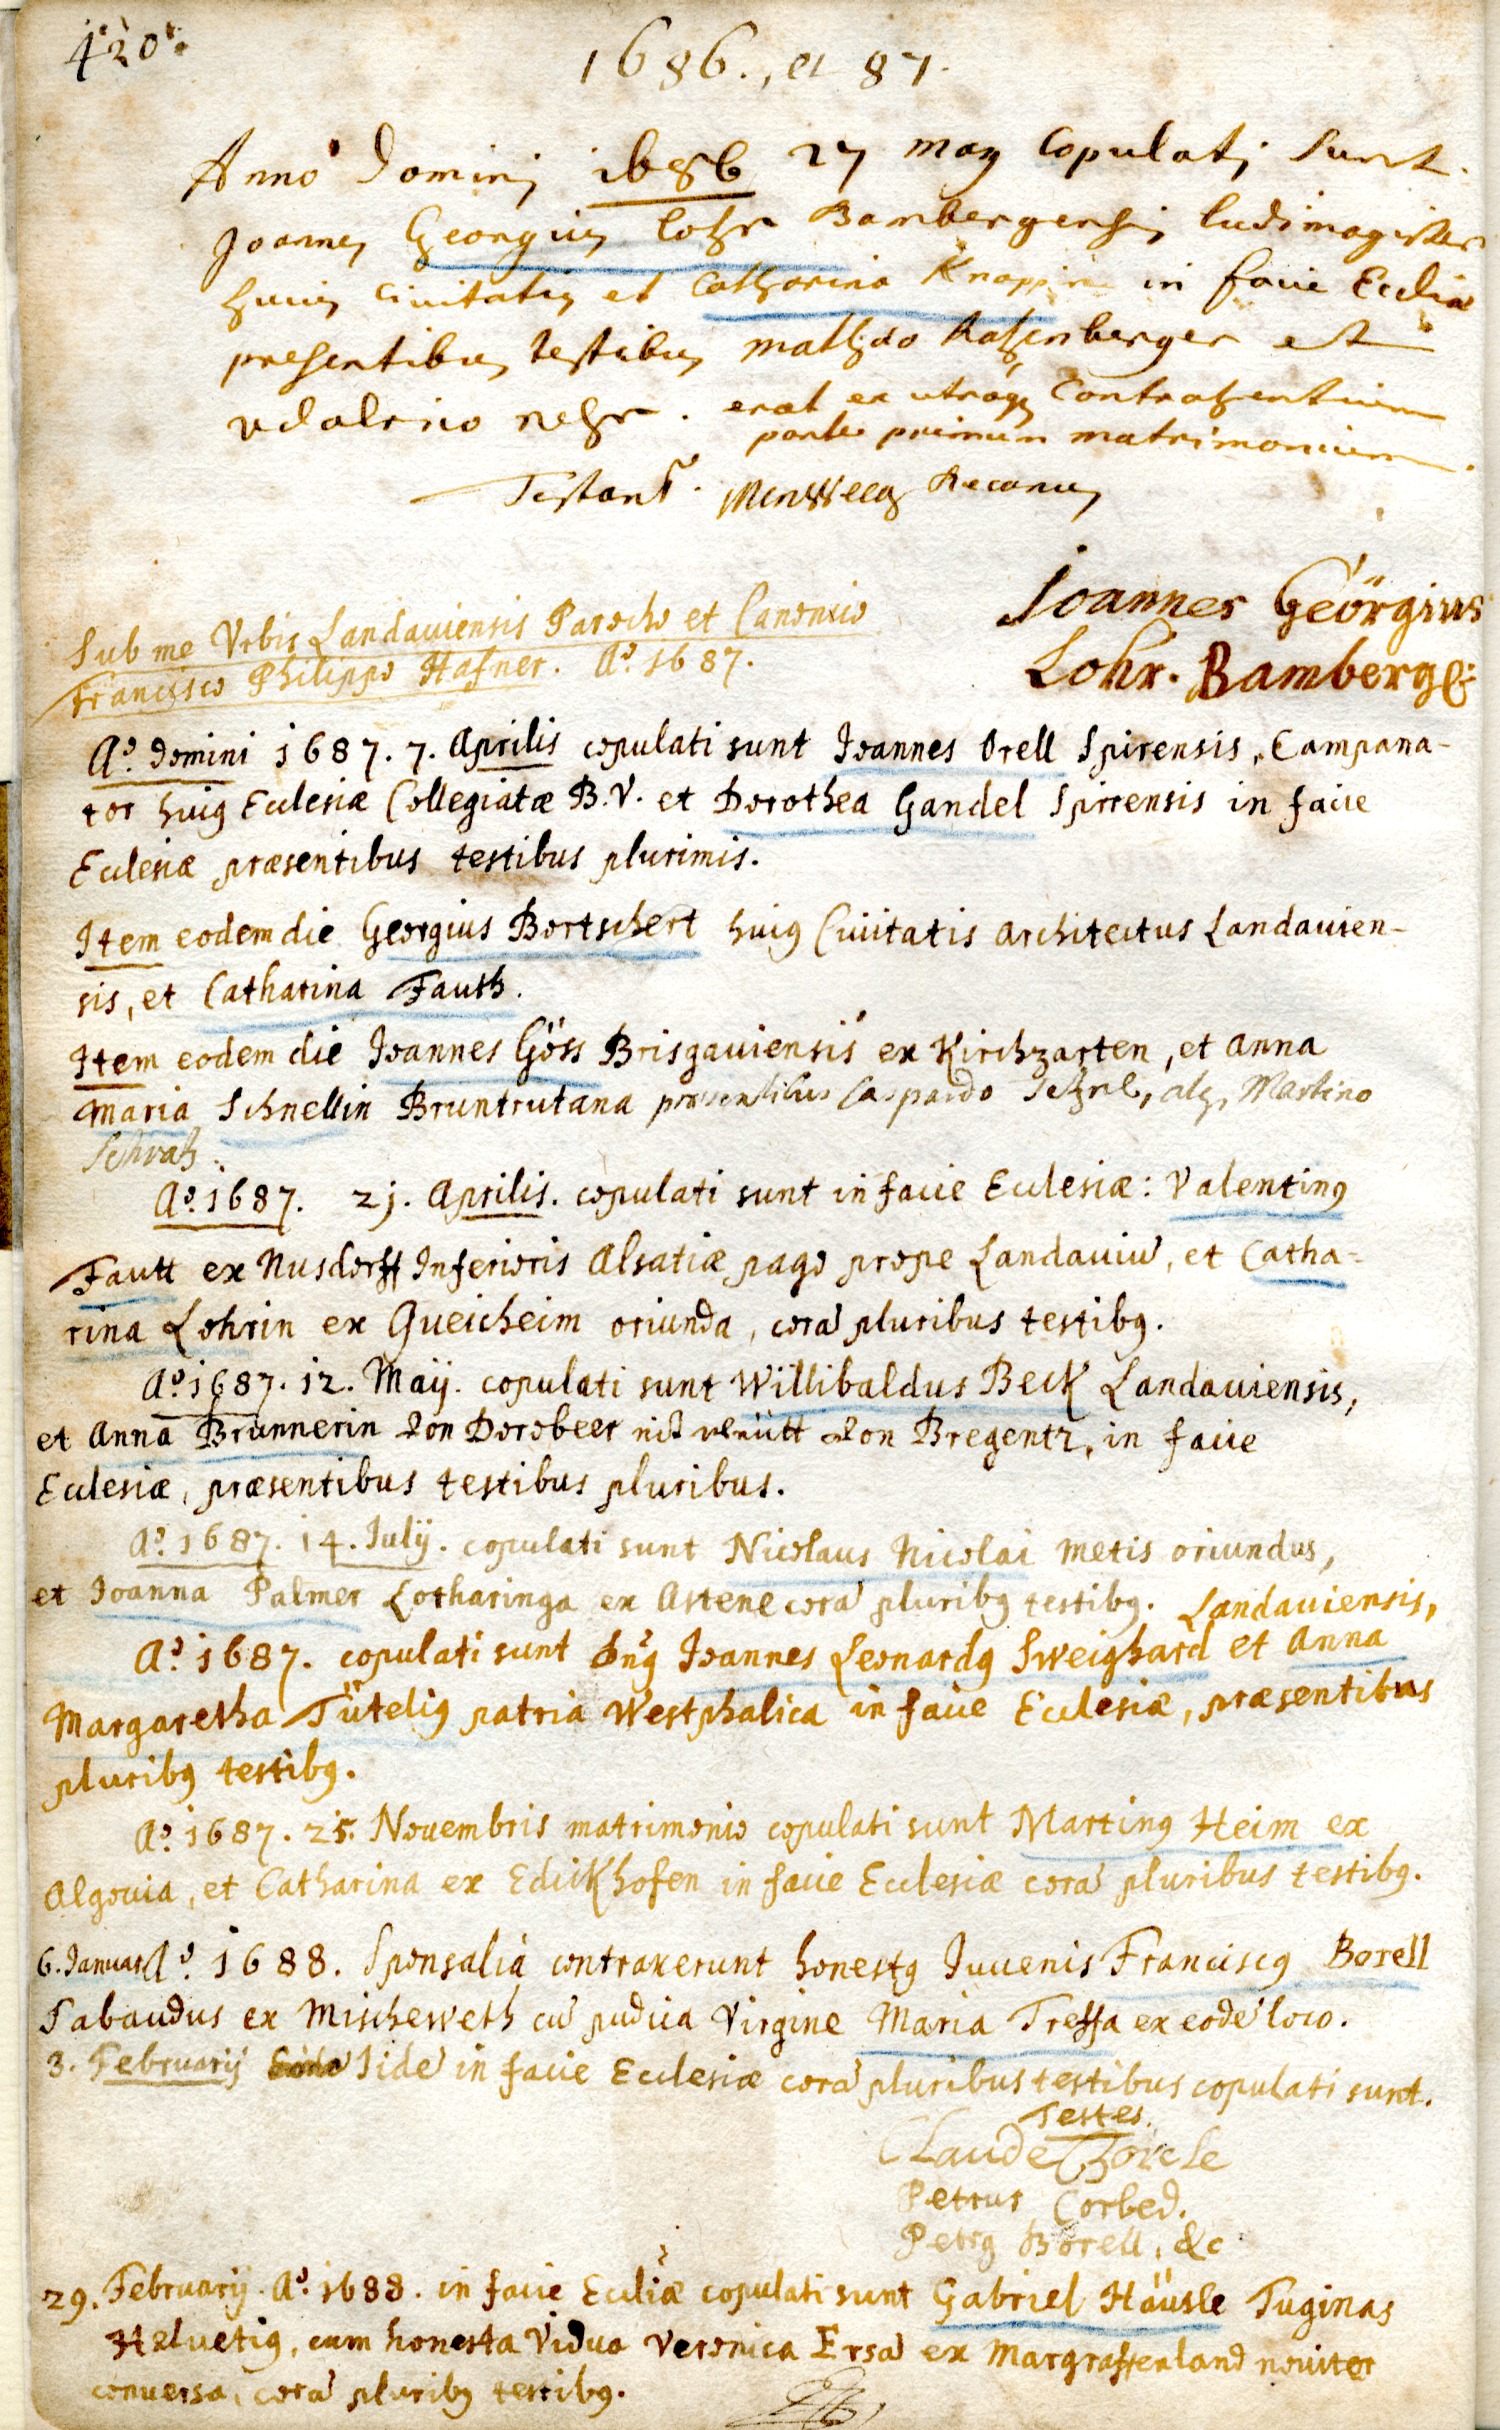 420.
1686., et 87.
Anno Dominj 1686 27 may Copulatj sunt.
Joannes Georgius Lohr Bambergensis ludimagister
huius Civitatis et Catharina Knappin in facie Eccliæ
presentibus testibus Mathæo Ratzenberger et
udalrico nehr. erat ex utraq Contrahentium
parte primum matrimonium.
Testant. Decanus
Joannes Geörgius
Lohr. Bamberg
Sub me Vrbis Landauiensis Parocho et Canonico
Francisco Philippo Hafner. Aº 1687.
Aº. Domini 1687. 7. Aprilis copulati sunt Joannes Orell Spirensis, Campana-
tor huiꝰ Ecclesiæ Collegiatæ B. V. et Dorothea Gandel Spirensis in facie
Ecclesiæ præsentibus testibus plurimis.
Item eodem die Georgius Bortschert huiꝰ Ciuitatis Architectus Landauien-
sis, et Catharina Fauth.
Item eodem die Joannes Göss Brisgauiensis ex Kirchzarten, et Anna
Maria Schnellin Bruntrutana præsentibus Casparo Martino
Aº. 1687. 21. Aprilis. copulati sunt in facie Ecclesiæ: Valentinꝰ
Fautt ex Nusdorff Inferioris Alsatiæ pago prope Landauiū, et Catha-
rina Lohrin ex Queicheim oriunda, corā pluribus testibꝰ.
Aº. 1687. 12. Maij. copulati sunt Willibaldus Beck Landauiensis,
et Anna Brunnerin Von Dorobeer nit von Bregentz, in facie
Ecclesiæ, præsentibus testibus pluribus.
Aº. 1687. 14. Julij. copulati sunt Nicolaus Nicolai Metis oriundus,
et Joanna Palmer Lotharinga ex Astene corā pluribꝰ testibꝰ. Landauiensis,
Aº. 1687. copulati sunt Dn̄ꝰ Joannes Leonardꝰ Sweighard et Anna
Margaretha Tütelig patria Westphalica in facie Ecclesiæ, præsentibus
pluribꝰ testibꝰ.
Aº. 1687. 25. Nouembris matrimonio copulati sunt Martinꝰ Heim ex
Algouia, et Catharina ex Edickhofen in facie Ecclesiæ corā pluribus testibꝰ.
6. Januar Aº. 1688. Sponsalia contraxerunt honestꝰ Juuenis Franciscꝰ Borell
Sabaudus ex Mischeweth cū pudica Virgine Maria Tressa ex eodē loco.
3. Februarij Iidē in facie Ecclesiæ corā pluribus testibus copulati sunt.
Testes.
Claude
Petrus Corbed.
Petrꝰ Borell, &c
29. Februarij. Aº. 1688. in facie Eccliæ copulati sunt Gabriel Häusle Tuginas
Heluetiꝰ, cum honesta Vidua Veronica Ersā ex Margraffenland nouiter
conuersa, corā pluribꝰ testibꝰ.